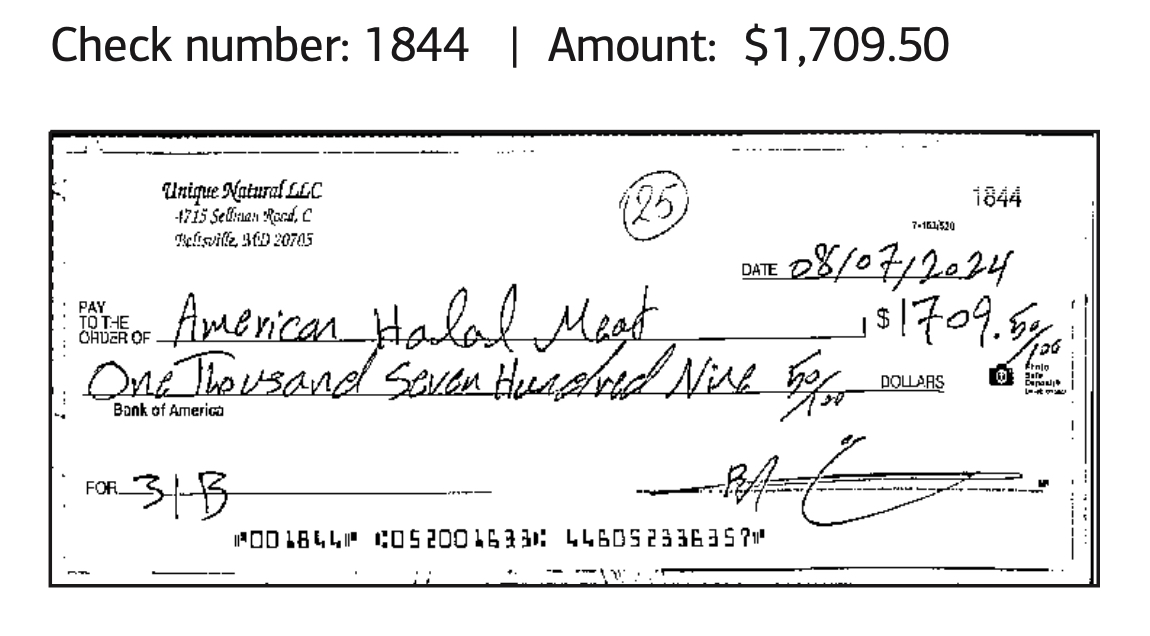 Check number: 1844 | Amount: $1,709.50
Unique Natural LLC
4715 Sellman Road, C
Beltsville, MD 20705
125
1844
7-163/520
DATE 08/07/2024
PAY TO THE ORDER OF American Halal Meat $1709.50/100
One Thousand Seven Hundred Nine 50/100 DOLLARS
Photo Safe Deposit
Bank of America
FOR 31B
⑈001844⑈ ⑆052001633⑆ 446052336357⑈